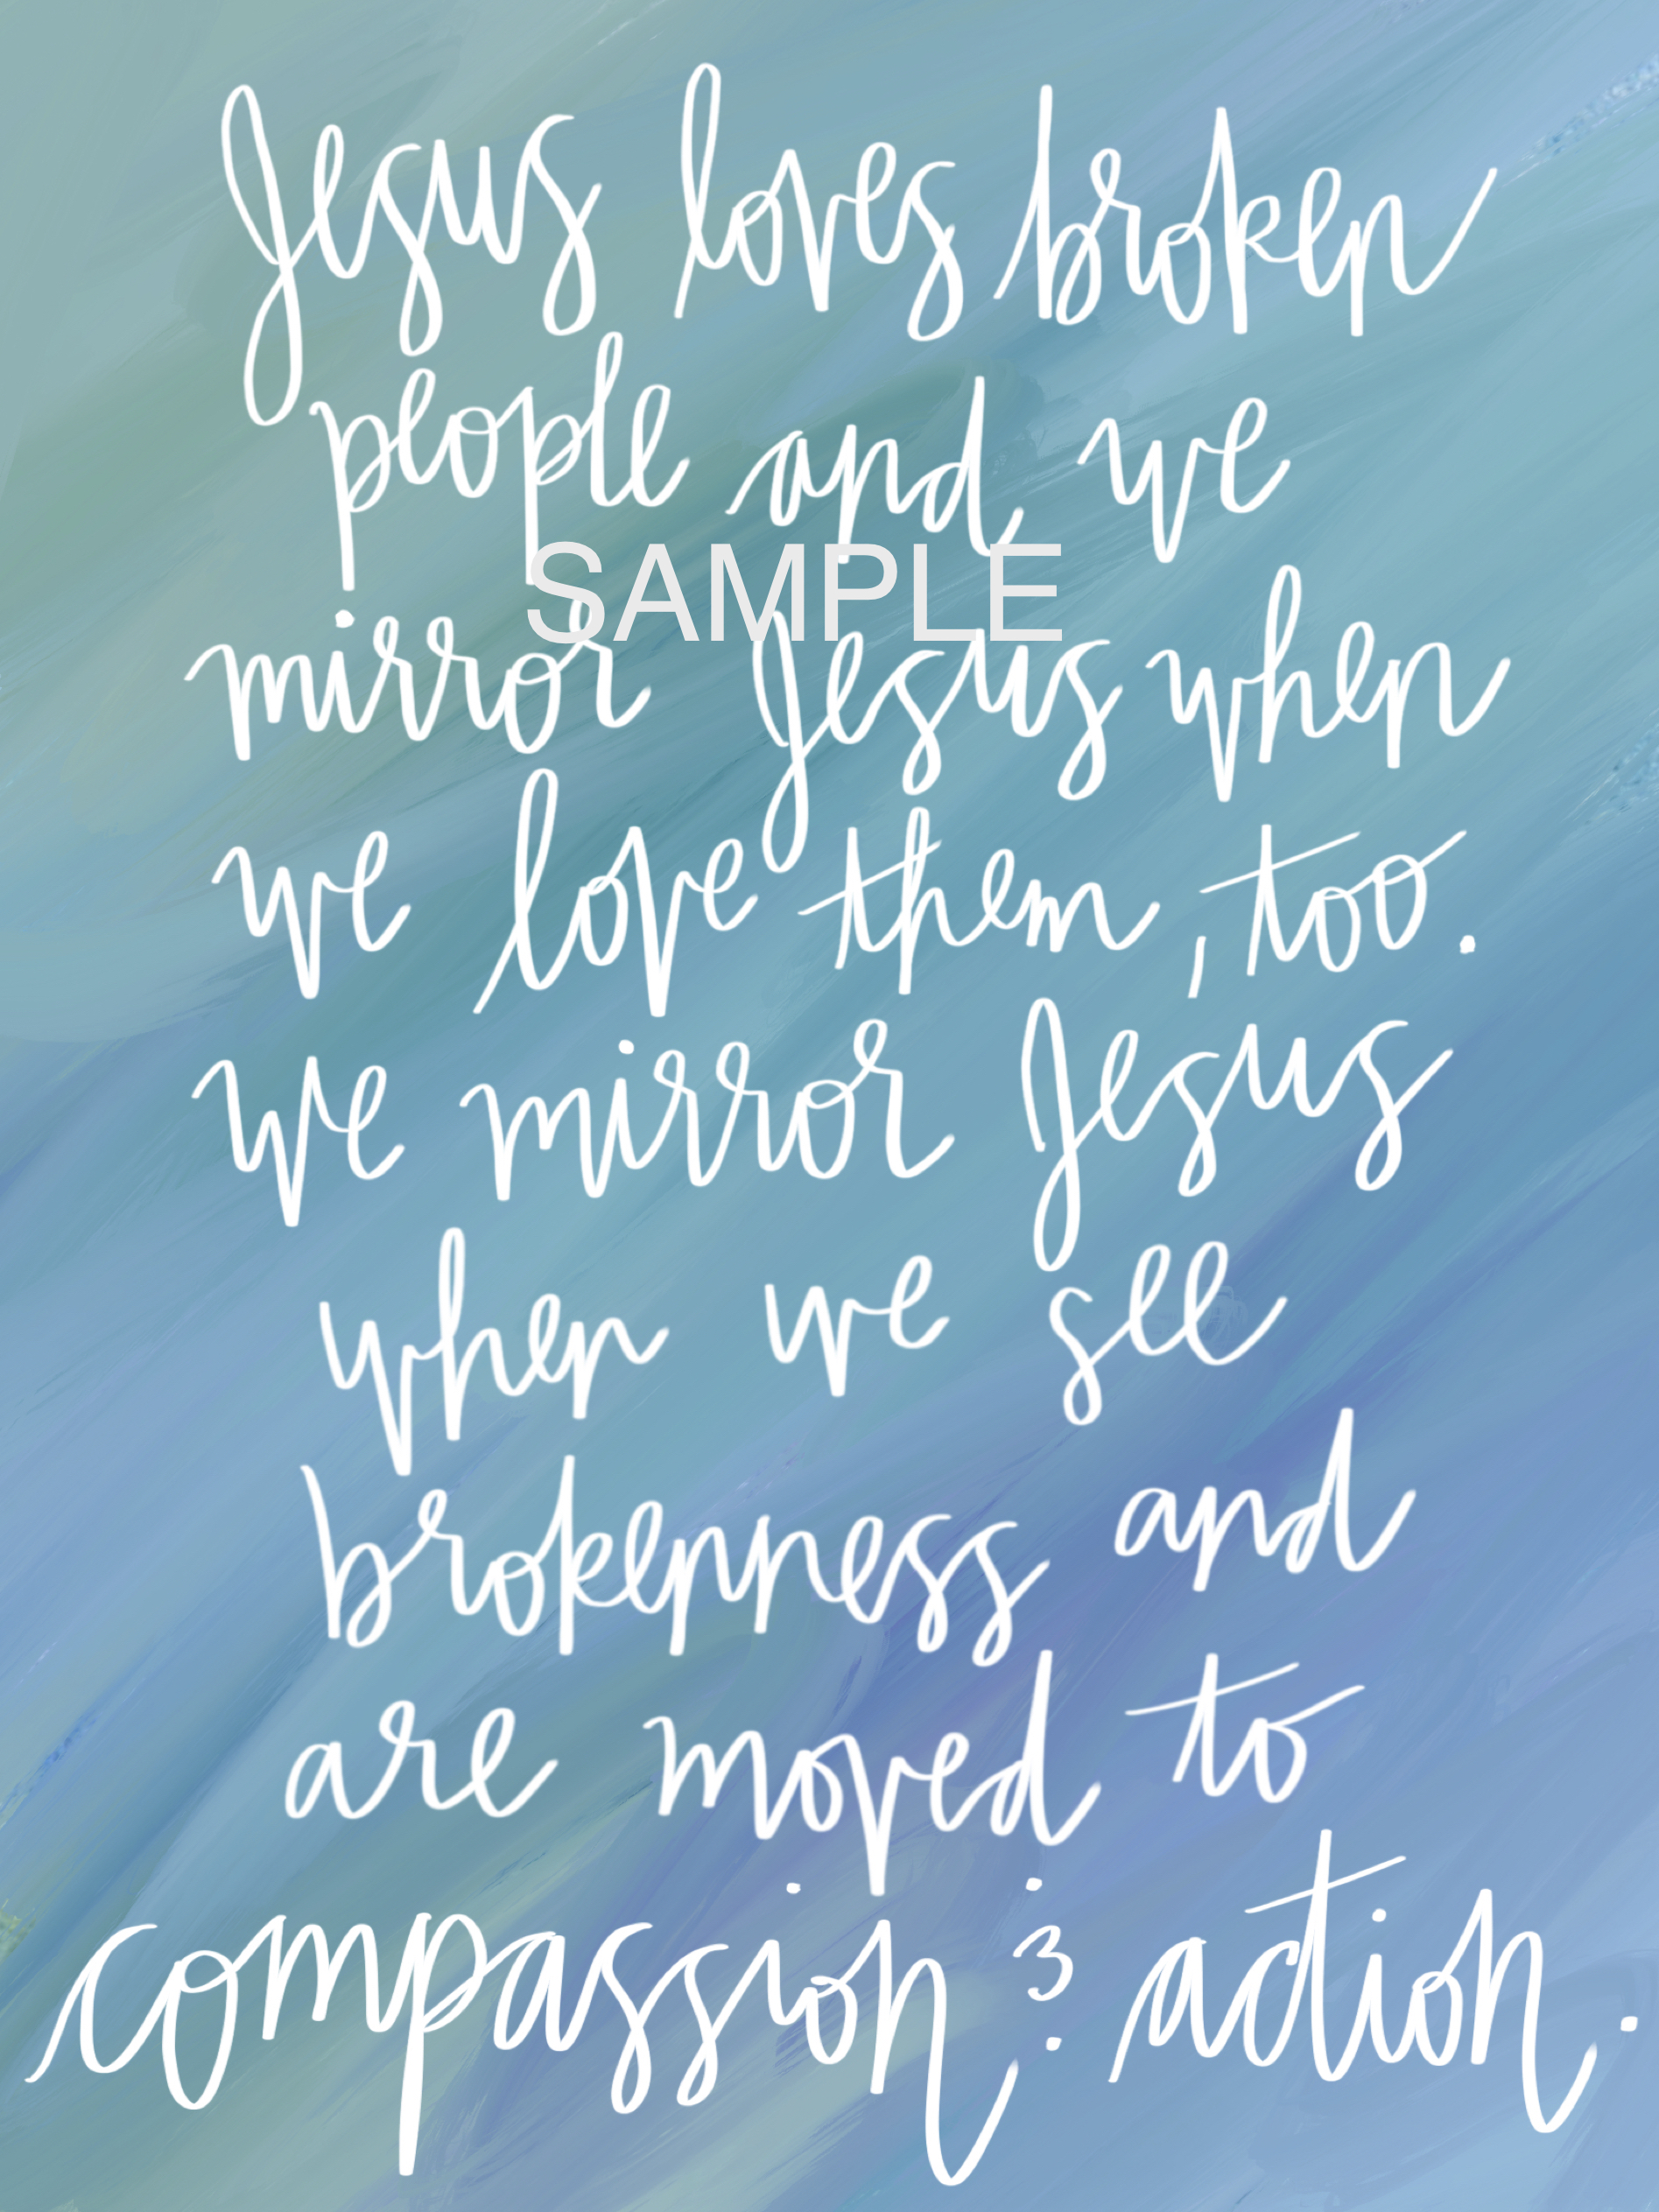 Jesus loves broken
people and we
SAMPLE
mirror Jesus when
we love them, too.
We mirror Jesus
when we see
brokenness and
are moved to
compassion & action.